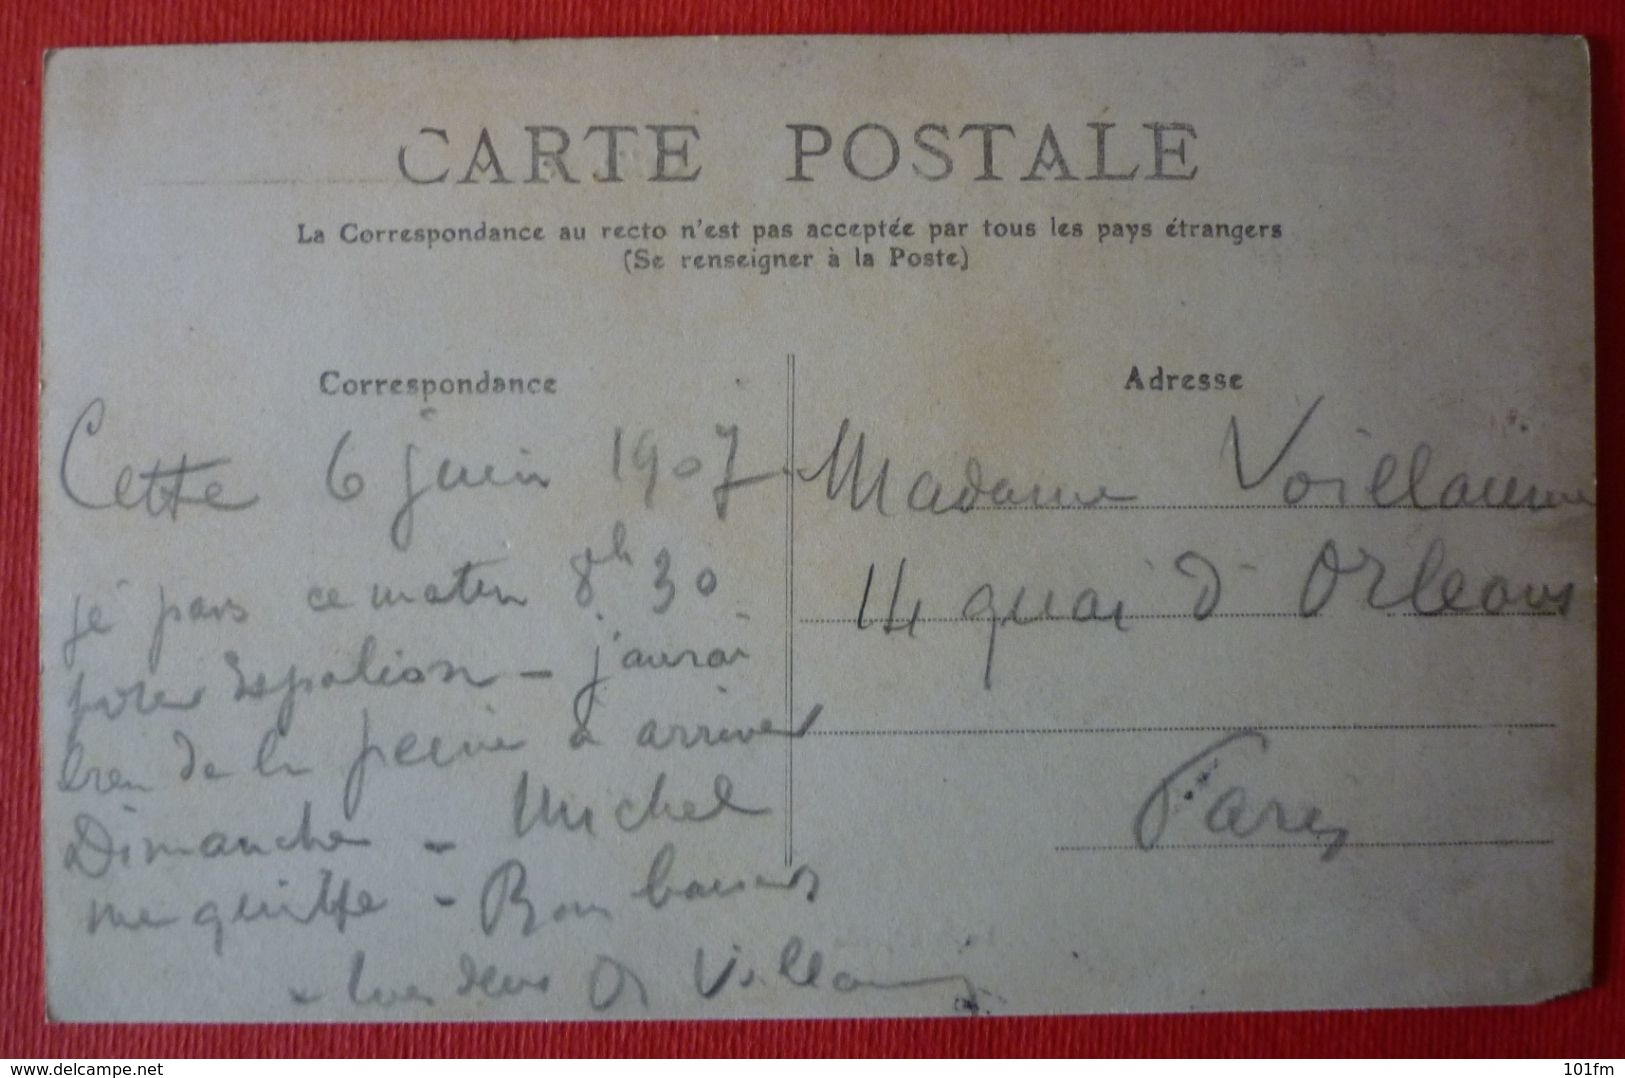 CARTE POSTALE
La Correspondance au recto n'est pas acceptée par tous les pays étrangers
(Se renseigner à la Poste)
Correspondance
Cette 6 juin 1907
je pars ce matin 8h 30
pour Espalion – j'aurai
bien de la peine à arriver
Dimanche – Michel
me quitte – Bons baisers
à tous deux Voillaume
Adresse
Madame Voillaume
14 quai d'Orleans
Paris
www.delcampe.net
101fm